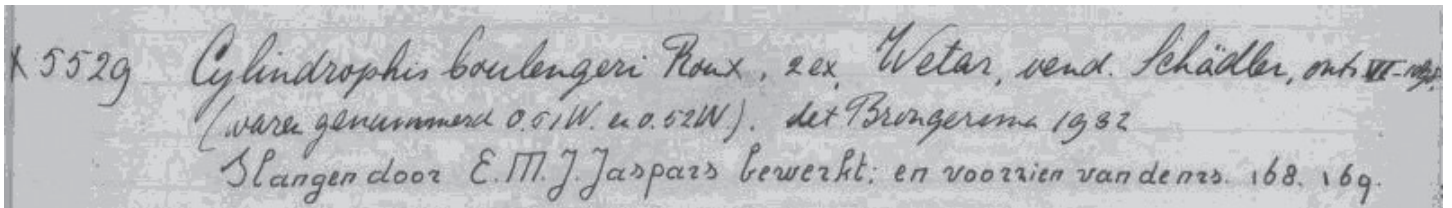 x 5529 Cylindrophis boulengeri Roux, 2 ex, Wetar, vend. Schädler, ontv. VI-1898.
(waren genummerd 0.51W. en 0.52W). det Brongersma 1932
Slangen door E.M.J. Jaspars bewerkt; en voorzien van de nrs. 168. 169.